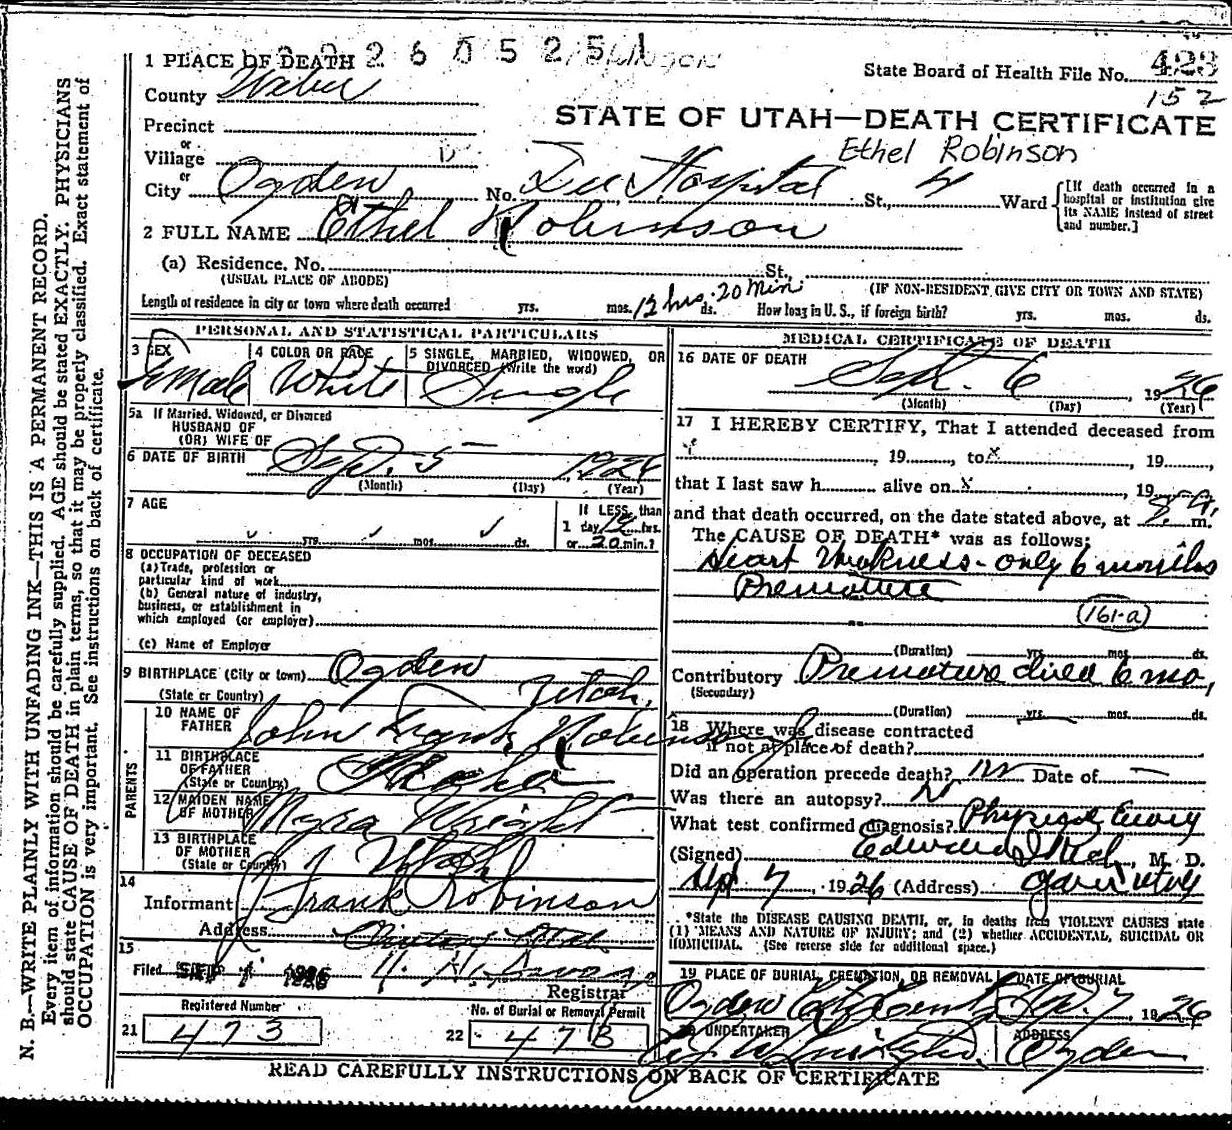 2 2 6 0 5 2 5 1
1 PLACE OF DEATH
State Board of Health File No. 423
152
County Weber
STATE OF UTAH—DEATH CERTIFICATE
Precinct
or
Village
Ethel Robinson
or
City Ogden No. Dee Hospital St., 4 Ward [If death occurred in a hospital or institution give its NAME instead of street and number.]
2 FULL NAME Ethel Robinson
(a) Residence. No. St.,
(USUAL PLACE OF ABODE) (IF NON-RESIDENT GIVE CITY OR TOWN AND STATE)
Length of residence in city or town where death occurred yrs. mos. 12 hrs. 20 Min ds. How long in U. S., if foreign birth? yrs. mos. ds.
PERSONAL AND STATISTICAL PARTICULARS
3 SEX
Female
4 COLOR OR RACE
White
5 SINGLE, MARRIED, WIDOWED, OR DIVORCED (Write the word)
Single
5a If Married, Widowed, or Divorced
HUSBAND OF
(OR) WIFE OF
6 DATE OF BIRTH Sept. 5 1926
(Month) (Day) (Year)
7 AGE
yrs. mos. ds.
If LESS than
1 day 12 hrs.
or 20 min.?
8 OCCUPATION OF DECEASED
(a) Trade, profession or
particular kind of work
(b) General nature of industry,
business, or establishment in
which employed (or employer)
(c) Name of Employer
9 BIRTHPLACE (City or town) Ogden
(State or Country) Utah
PARENTS
10 NAME OF
FATHER John Frank Robinson
11 BIRTHPLACE
OF FATHER
(State or Country)
12 MAIDEN NAME
OF MOTHER Myra Wright
13 BIRTHPLACE
OF MOTHER
(State or Country) Utah
14
Informant J Frank Robinson
Address
15
Filed 1926
Registrar
Registered Number
21 473
No. of Burial or Removal Permit
22 47B
MEDICAL CERTIFICATE OF DEATH
16 DATE OF DEATH
Sept. 6, 1926
(Month) (Day) (Year)
17 I HEREBY CERTIFY, That I attended deceased from
, 19, to x, 19,
that I last saw h alive on x, 19
and that death occurred, on the date stated above, at 8 a. m.
The CAUSE OF DEATH* was as follows:
Heart Weakness - only 6 months
Premature
(161-a)
(Duration) yrs. mos. ds.
Contributory Premature child 6 mo,
(Secondary)
(Duration) yrs. mos. ds.
18 Where was disease contracted
if not at place of death?
Did an operation precede death? no Date of —
Was there an autopsy? No
What test confirmed diagnosis? Physical
(Signed) Edward I Rich, M. D.
Sep 7, 1926 (Address) Ogden Utah
*State the DISEASE CAUSING DEATH, or, in deaths from VIOLENT CAUSES state
(1) MEANS AND NATURE OF INJURY; and (2) whether ACCIDENTAL, SUICIDAL OR
HOMICIDAL. (See reverse side for additional space.)
19 PLACE OF BURIAL, CREMATION, OR REMOVAL
Ogden City
DATE OF BURIAL
Sep. 7 1926
20 UNDERTAKER
ADDRESS
Ogden
READ CAREFULLY INSTRUCTIONS ON BACK OF CERTIFICATE
N. B.—WRITE PLAINLY WITH UNFADING INK—THIS IS A PERMANENT RECORD.
Every item of information should be carefully supplied. AGE should be stated EXACTLY. PHYSICIANS
should state CAUSE OF DEATH in plain terms, so that it may be properly classified. Exact statement of
OCCUPATION is very important. See instructions on back of certificate.